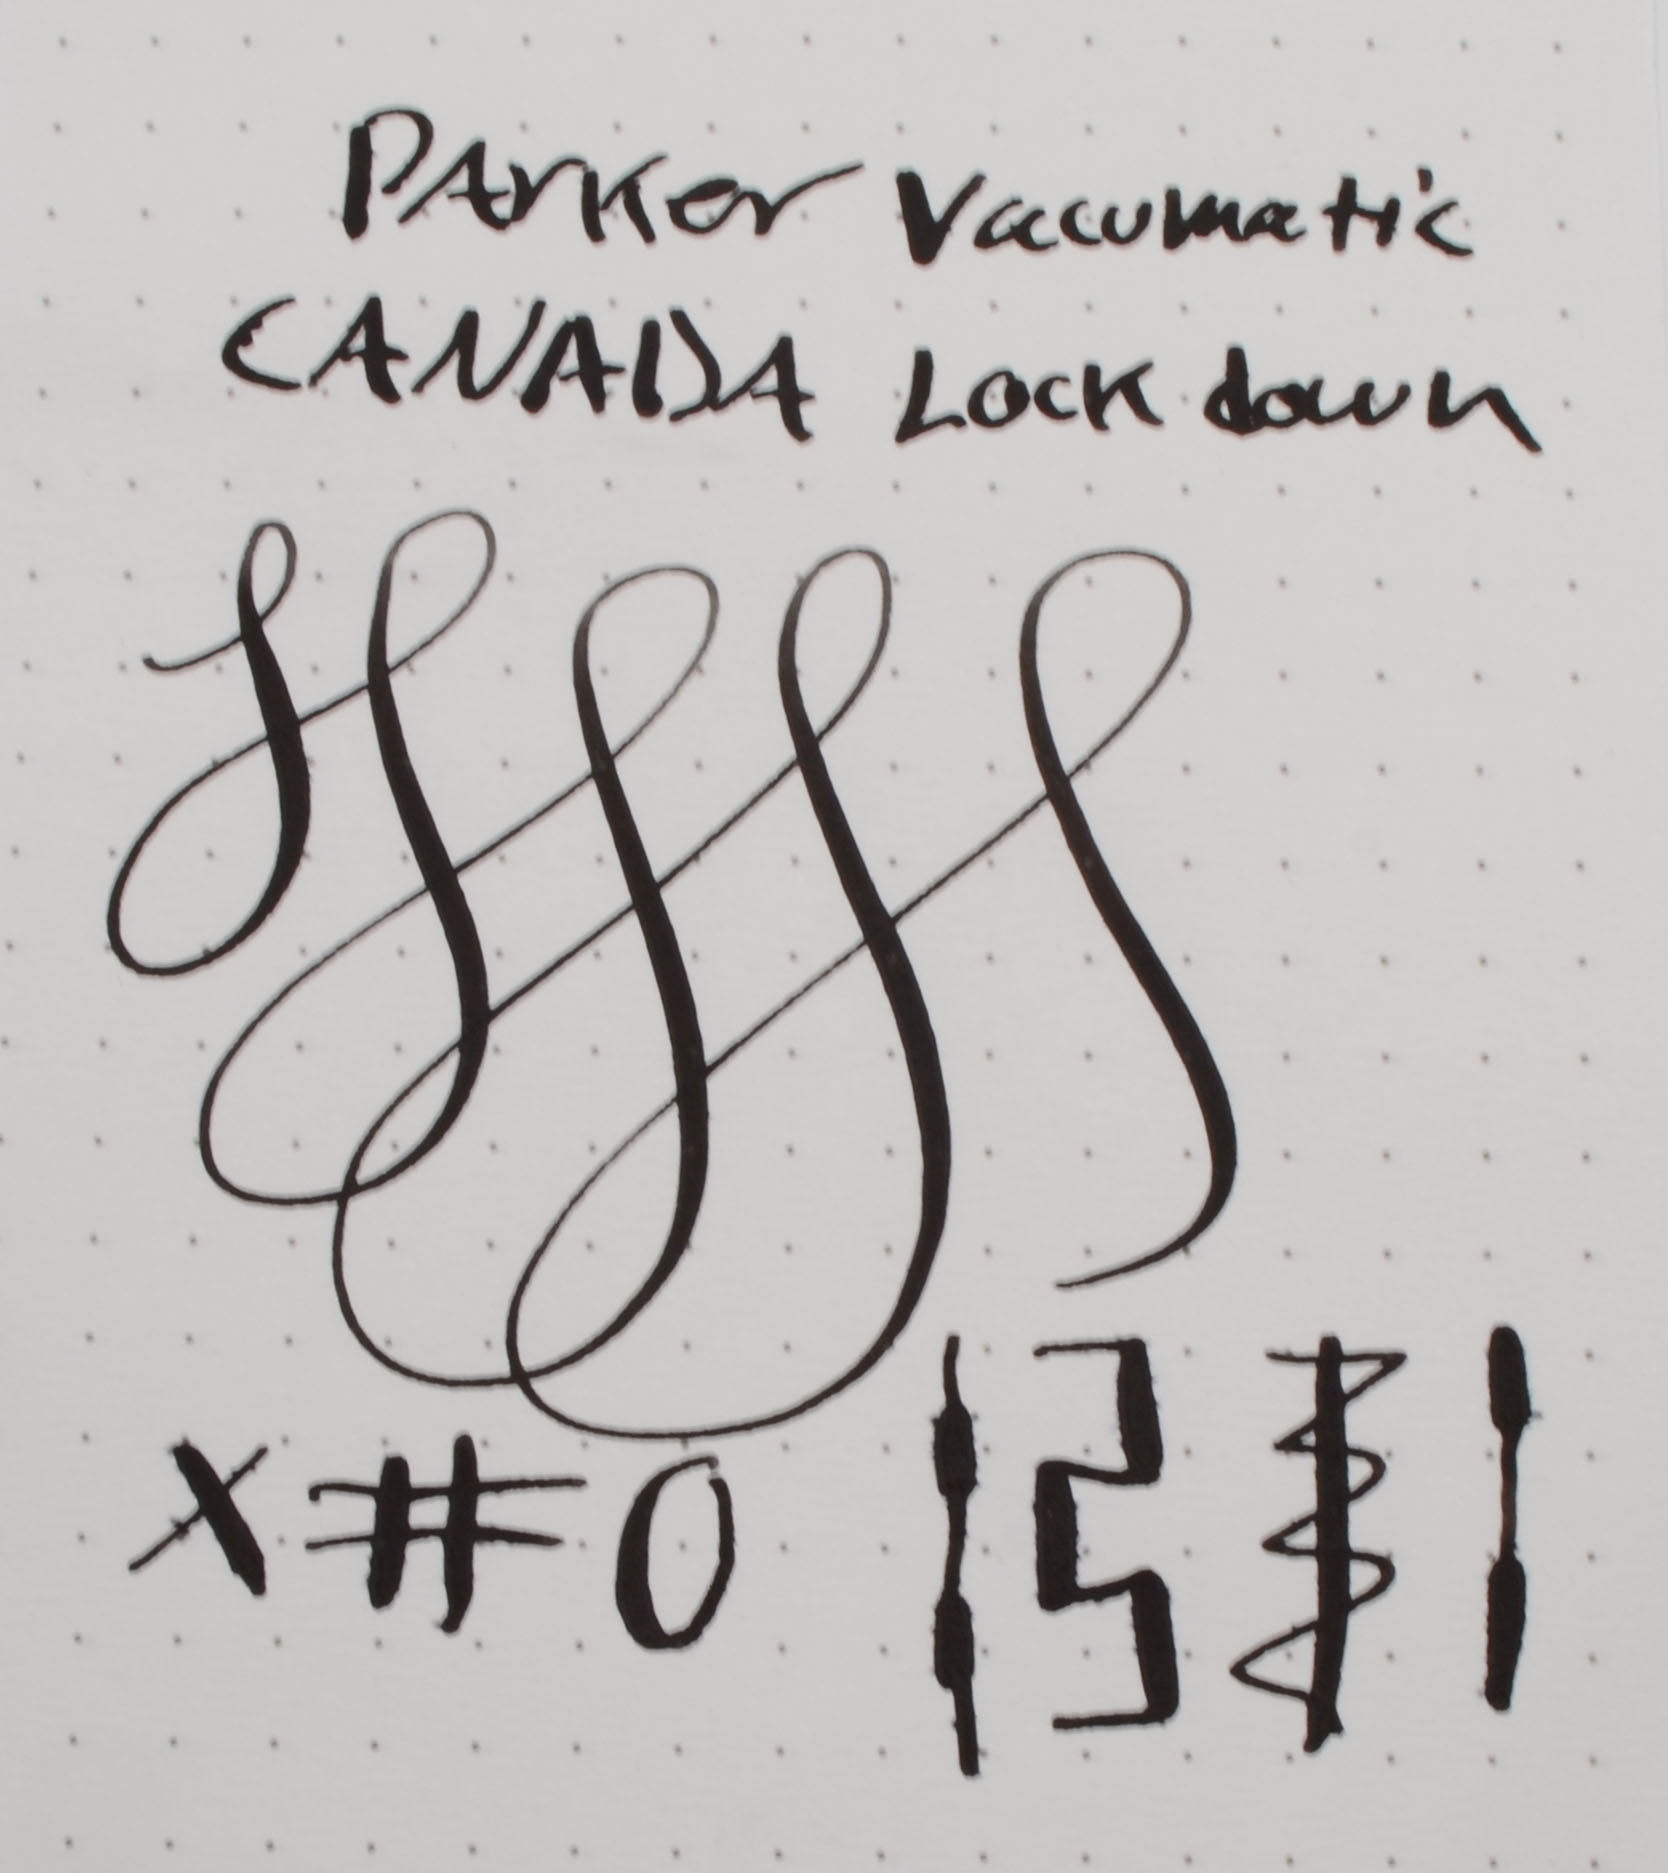 PArker Vacumatic
CANADA Lock down
X # 0